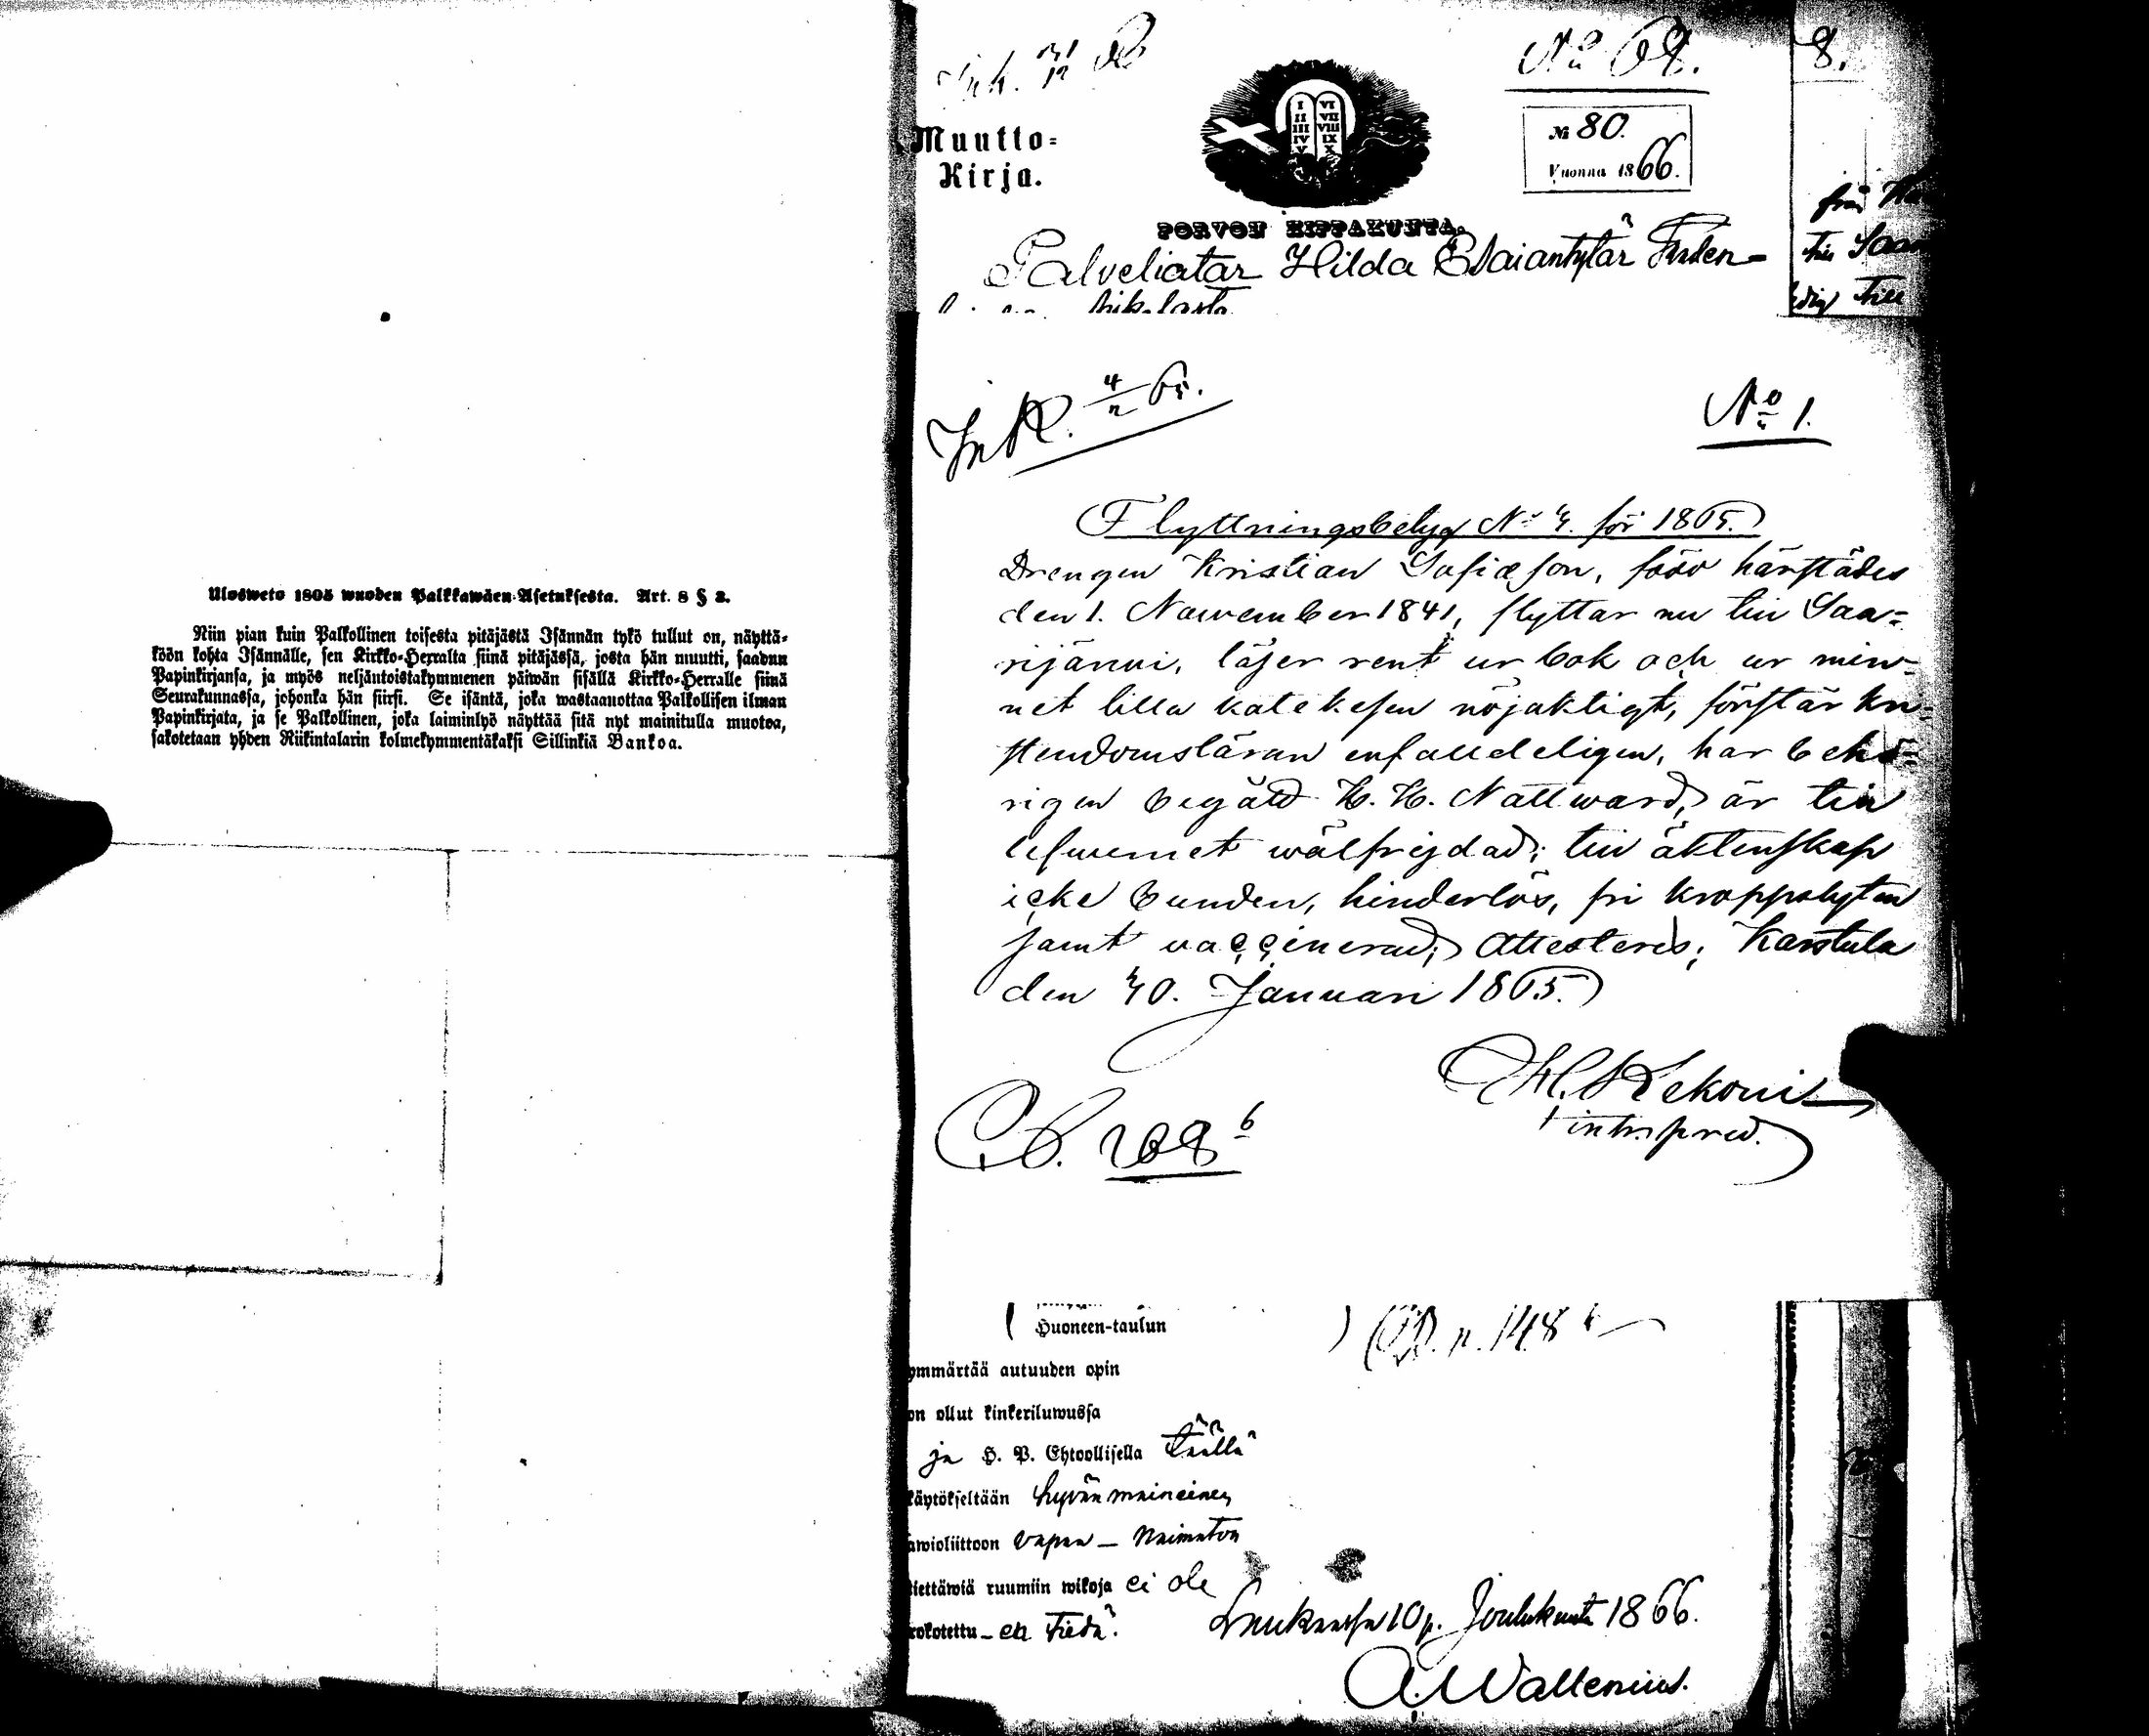 Ulosweto 1805 wuoden Palkkawäen-Asetuksesta. Art. 8 § 2.
Niin pian kuin Palkollinen toisesta pitäjästä Isännän tykö tullut on, näyttä-
köön kohta Isännälle, sen Kirkko-Herralta siinä pitäjässä, josta hän muutti, saadun
Papinkirjansa, ja myös neljäntoistakymmenen päiwän sisällä Kirkko-Herralle siinä
Seurakunnassa, johonka hän siirsi. Se isäntä, joka wastaanottaa Palkollisen ilman
Papinkirjata, ja se Palkollinen, joka laiminlyö näyttää sitä nyt mainitulla muotoa,
sakotetaan yhden Riikintalarin kolmekymmentäkaksi Sillinkiä Bankoa.
Ink. 31/12
No 68.
Muutto-
Kirja.
I VI
II VII
III VIII
IV IX
V X
№ 80.
Vuonna 1866.
PORVON HIPPAKUNTA.
Palveliatar Hilda Esaiantytär
8.
från
till
till
Ink. 4/2 65.
No 1.
Flyttningsbetyg No 4. för 1865.
Drengen Kristian Sofiæson, född härstädes
den 1. November 1841, flyttar nu till Saa-
rijärvi, läser rent ur bok och ur min-
net lilla katekesen nöjaktigt, förstår kri-
stendomsläran enfaldeligen, har behö-
rigen begått H. H. Nattward, är till
lefwernet wälfrejdad; till äktenskap
icke bunden, hinderlös, fri kroppslyten
samt vaccinerad; attesteras; Karstula
den 30. Januari 1865.
H. Kekoni
intr. pred.
C.B. 268 b
Huoneen-taulun
ymmärtää autuuden opin
on ollut kinkeriluwussa
ja H. P. Ehtoollisella täällä
käytökseltään hyvän maineinen
awioliittoon vapaa — Naimaton
tiettäwiä ruumiin wikoja ei ole
rokotettu — en tiedä.
Laukaassa 10 p. Joulukuuta 1866.
A. Wallenius.